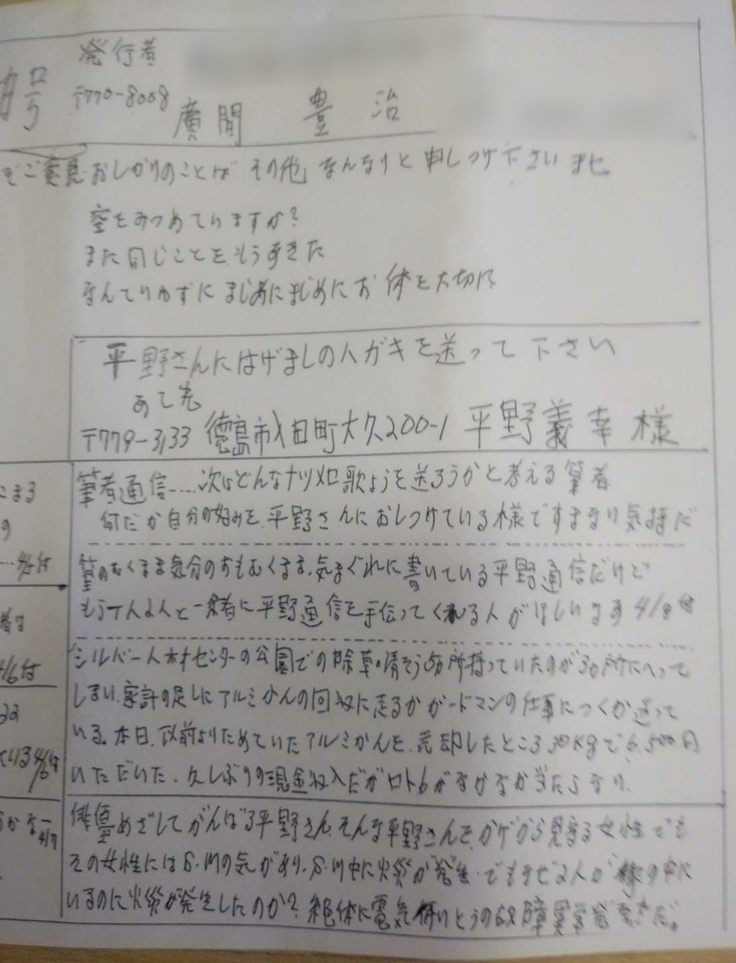 号
発行者
〒770-8008
廣間 豊治
ご意見、おしかりのことば その他 なんなりと申しつけ下さいませ
空をみつめていますか?
また同じことをもうすきた
なんていわずに まじめにまじめにお体を大切に
平野さんにはげましのハガキを送って下さい
あて先
〒779-3133 徳島市入田町大久200-1 平野義幸様
筆者通信.... 次はどんなナツメロ歌ようを送ろうかと考える筆者
何だか自分の好みを、平野さんにおしつけている様ですまない気持だ
筆のむくまま気分のおもむくまま、気まぐれに書いている平野通信だけど
もう一人2人と一緒に平野通信を手伝ってくれる人がほしいなす 4/8付
シルバー人材センターの公園での除草・清そう 所持っていたのが30所にへって
しまい、家計の足しにアルミかんの回収に走るかガードマンの仕事につくか迷って
いる。本日、以前よりためていたアルミかんを、売却したところ 30kgで6,500円
いただいた。久しぶりの現金収入だがロト6がなかなか当たらない。
俳優めざしてがんばる平野さん、そんな平野さんを、かげから見守る女性でも
その女性にはS・Mの気があり、S・M中に火災が発生・でもなぜ2人が家の中に
いるのに火災が発生したのか?絶体に電気 とうの 障
こまる
の
... 4/5付
4/6付
4/6付
4/7